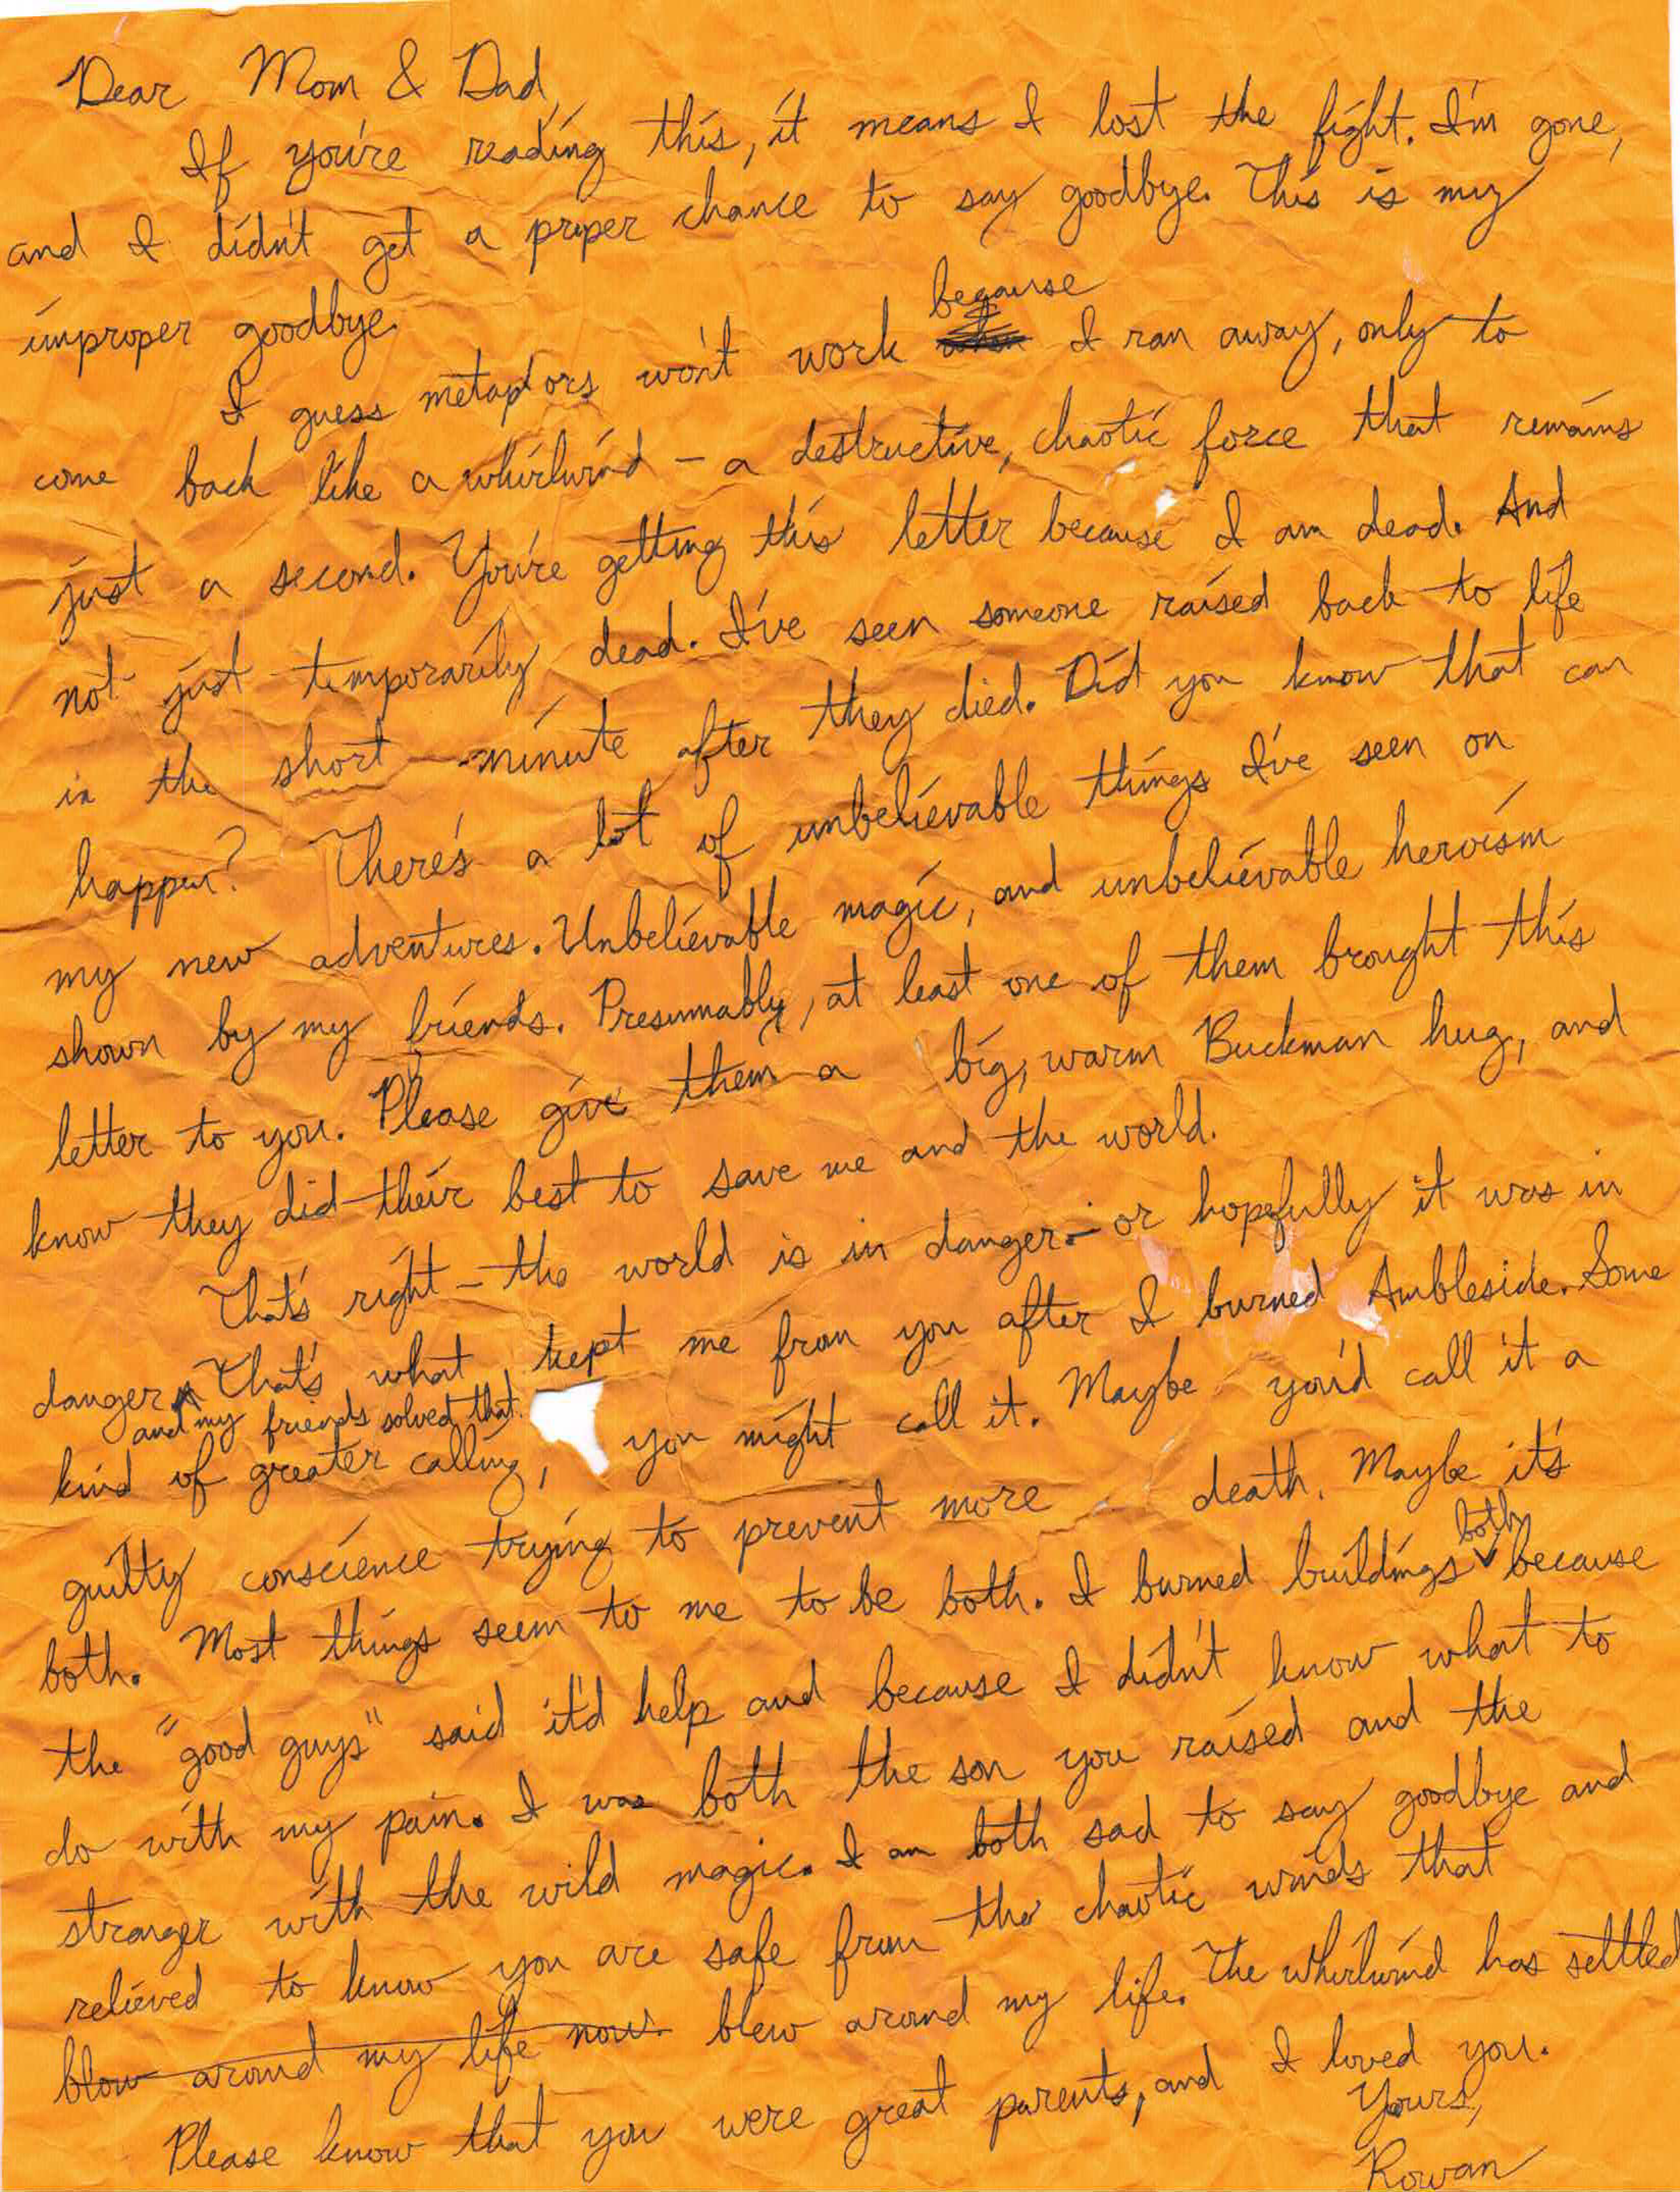 Dear Mom & Dad,
If you're reading this, it means I lost the fight. I'm gone,
and I didn't get a proper chance to say goodbye. This is my
improper goodbye.
I guess metaphors won't work because I ran away, only to
come back like a whirlwind – a destructive, chaotic force that remains
just a second. You're getting this letter because I am dead. And
not just temporarily dead. I've seen someone raised back to life
in the short minute after they died. Did you know that can
happen? There's a lot of unbelievable things I've seen on
my new adventures. Unbelievable magic, and unbelievable heroism
shown by my friends. Presumably, at least one of them brought this
letter to you. Please give them a big, warm Buckman hug, and
know they did their best to save me and the world.
That's right – the world is in danger – or hopefully it was in
danger. That's what kept me from you after I burned Ambleside. Some
and my friends solved that.
kind of greater calling, you might call it. Maybe you'd call it a
guilty conscience trying to prevent more death. Maybe it's
both. Most things seem to me to be both. I burned buildings both because
the "good guys" said it'd help and because I didn't know what to
do with my pain. I was both the son you raised and the
stranger with the wild magic. I am both sad to say goodbye and
relieved to know you are safe from the chaotic winds that
blow around my life now. blew around my life. The whirlwind has settled
Please know that you were great parents, and I loved you.
Yours,
Rowan